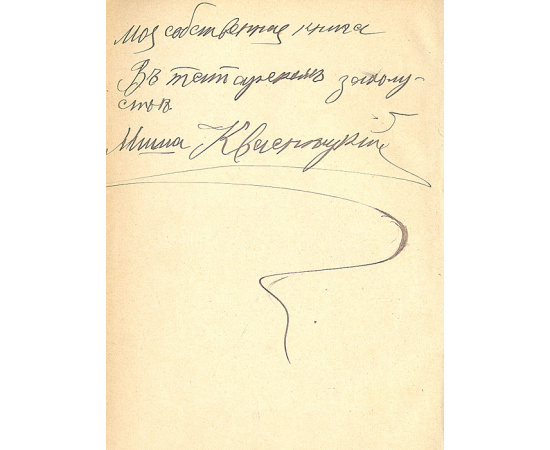 моя собственная книга
Въ татарскомъ захолу-
стьѣ
Миша Квасницкій